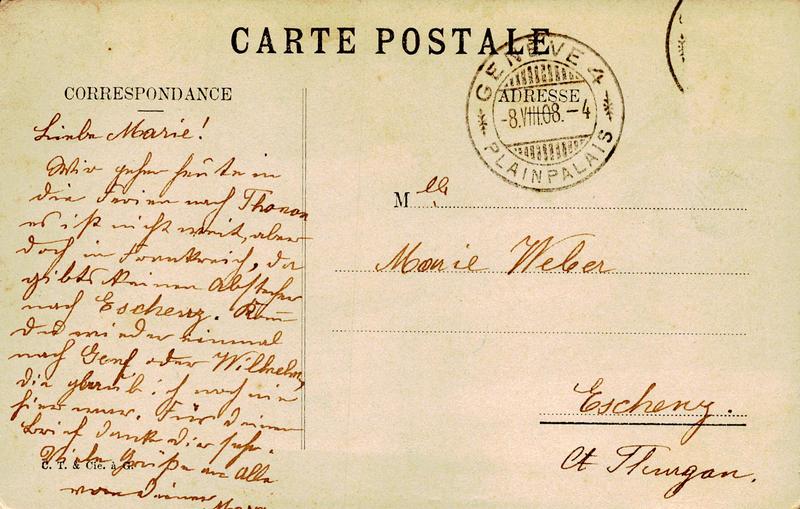 CARTE POSTALE
CORRESPONDANCE
ADRESSE
GENÈVE 4
-8.VIII.08.-4
PLAINPALAIS
Liebe Marie!
Wir gehen heute in
die Ferien nach Thonon
es ist nicht weit, aber
doch in Frankreich, da
gibts keinen Abstecher
nach Eschenz.
du wieder einmal
nach Genf oder Wilhelm,
die glaub ich noch nie
hier war. Für deinen
Brief dank dir sehr.
Viele Grüße an Alle
von deiner
C. T. & Cie. à G.
Mlle
Marie Weber
Eschenz.
Ct Thurgau.